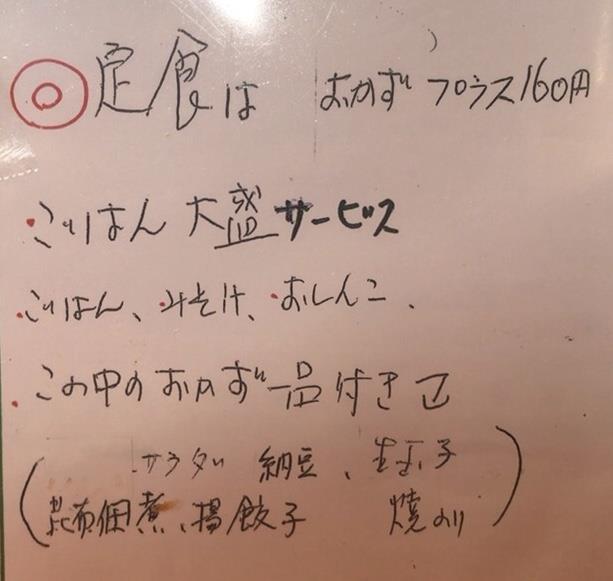 ◎定食は おかず プラス160円
・ごはん 大盛サービス
・ごはん、・みそ汁、・おしんこ、
・この中のおかず一品付き
(サラダ 納豆、生玉子
昆布佃煮、揚餃子 焼のり)